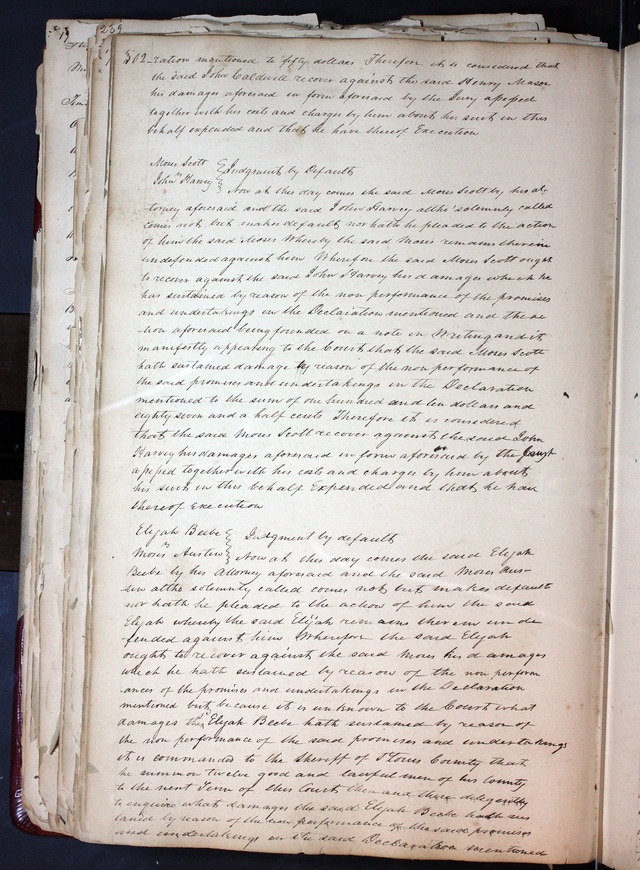 239
302 ration mentioned to fifty dollars Therefore it is considered that
the said John Caldwell recover against the said Henry Mason
his damages aforesaid in form aforesaid by the Jury assessed
together with his costs and charges by him about his suit in this
behalf expended and that he have thereof Execution
Moses Scott
vs Judgment by Default
John Harvey Now at this day comes the said Moses Scott by his at-
torney aforesaid and the said John Harvey altho' solemnly called
comes not but makes default nor hath he pleaded to the action
of him the said Moses Whereby the said Moses remains therein
undefended against him Wherefore the said Moses Scott ought
to recover against the said John Harvey his damages which he
has sustained by reason of the non performance of the promises
and undertakings in the Declaration mentioned and the ac-
tion aforesaid being founded on a note in Writing and it
manifestly appearing to the Court that the said Moses Scott
hath sustained damage by reason of the non performance of
the said promises and undertakings in the Declaration
mentioned to the sum of one hundred and ten dollars and
eighty seven and a half cents Therefore it is considered
that the said Moses Scott recover against the said John
Harvey his damages aforesaid in form aforesaid by the Court
assessed together with his costs and charges by him about
his suit in this behalf Expended and that he have
thereof Execution
Elijah Beebe
vs Judgment by default
Moses Austin Now at this day comes the said Elijah
Beebe by his Attorney aforesaid and the said Moses Aus-
tin altho solemnly called comes not but makes default
nor hath he pleaded to the action of him the said
Elijah whereby the said Elijah remains therein unde
fended against him Wherefore the said Elijah
ought to recover against the said Moses his damages
which he hath sustained by reason of the non perform
ances of the promises and undertakings in the Declaration
mentioned but because it is unknown to the Court what
damages the sd Elijah Beebe hath sustained by reason of
the non performance of the said promises and undertakings
it is commanded to the Sheriff of St Louis County that
he summon twelve good and lawful men of his County
to the next Term of this Court then and there diligently
to enquire what damages the said Elijah Beebe hath sus
tained by reason of the non performance of the said promises
and undertakings in the said Declaration mentioned